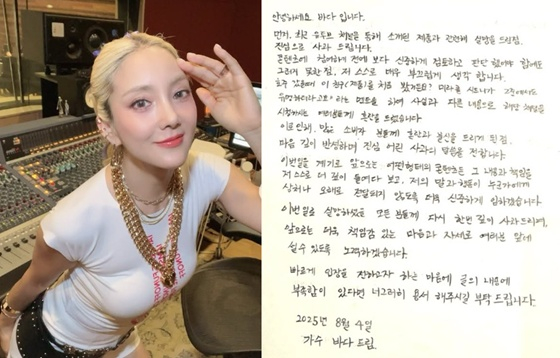 안녕하세요 바다 입니다.
먼저, 최근 유튜브 채널을 통해 소개된 제품과 관련해 실망을 드린점,
진심으로 사과 드립니다.
콘텐츠에 참여하기 전에 보다 신중하게 검토하고 판단 했어야 함에도
그러지 못한 점, 저 스스로 매우 부끄럽게 생각 합니다.
호주
이 친구(제품)를 처음 봤거든요?
라는 멘트를 하여 사실과 다른 내용으로 해당 채널을
혼란을 드렸습니다
이로 인해, 많은 소비자 분들께 혼란과 불신을 드리게 된점,
마음 깊이 반성하며 진심 어린 사과의 말씀을 전합니다.
이번일을 계기로 앞으로는 어떤형태의 콘텐츠든 그 내용과 책임을
저 스스로 더 깊이 들여다 보고, 저의 말과 행동이 누군가에게
상처나 오해로 전달되지 않도록 더욱 신중하게 임하겠습니다.
이번일로 실망하셨을 모든 분들께 다시 한번 깊이 사과드리며,
앞으로는 더욱 책임감 있는 마음과 자세로 여러분 앞에
설 수 있도록 노력하겠습니다.
바르게 입장을 전하고자 하는 마음에 글의 내용에
부족함이 있다면 너그러히 용서 해주시길 부탁 드립니다.
2025년 8월 4일
가수 바다 드림.